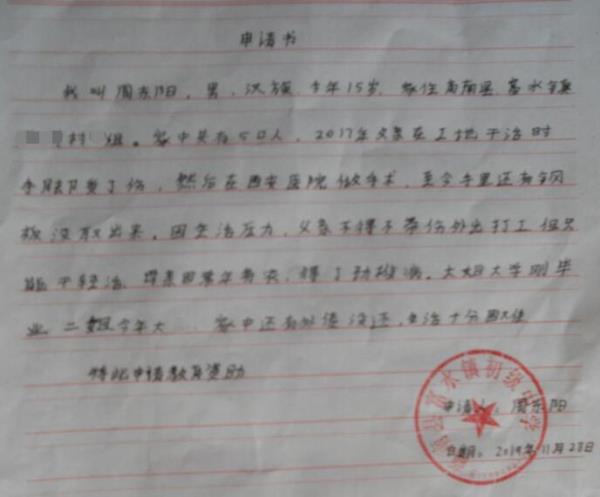 申请书
我叫周东阳,男,汉族,今年15岁,家住商南县富水镇
村 组。家中共有5口人,2017年父亲在工地干活时
手腕受了伤,然后在西安医院做手术,至今手里还有钢
板没取出来。因生活压力,父亲不得不带伤外出打工但只
能干轻活,母亲因常年劳累,得了颈椎病。大姐大学刚毕
业二姐今年大 家中还有外债没还,生活十分困难
特此申请教育资助
申请人:周东阳
日期:2019年11月28日
商南县富水镇初级中学